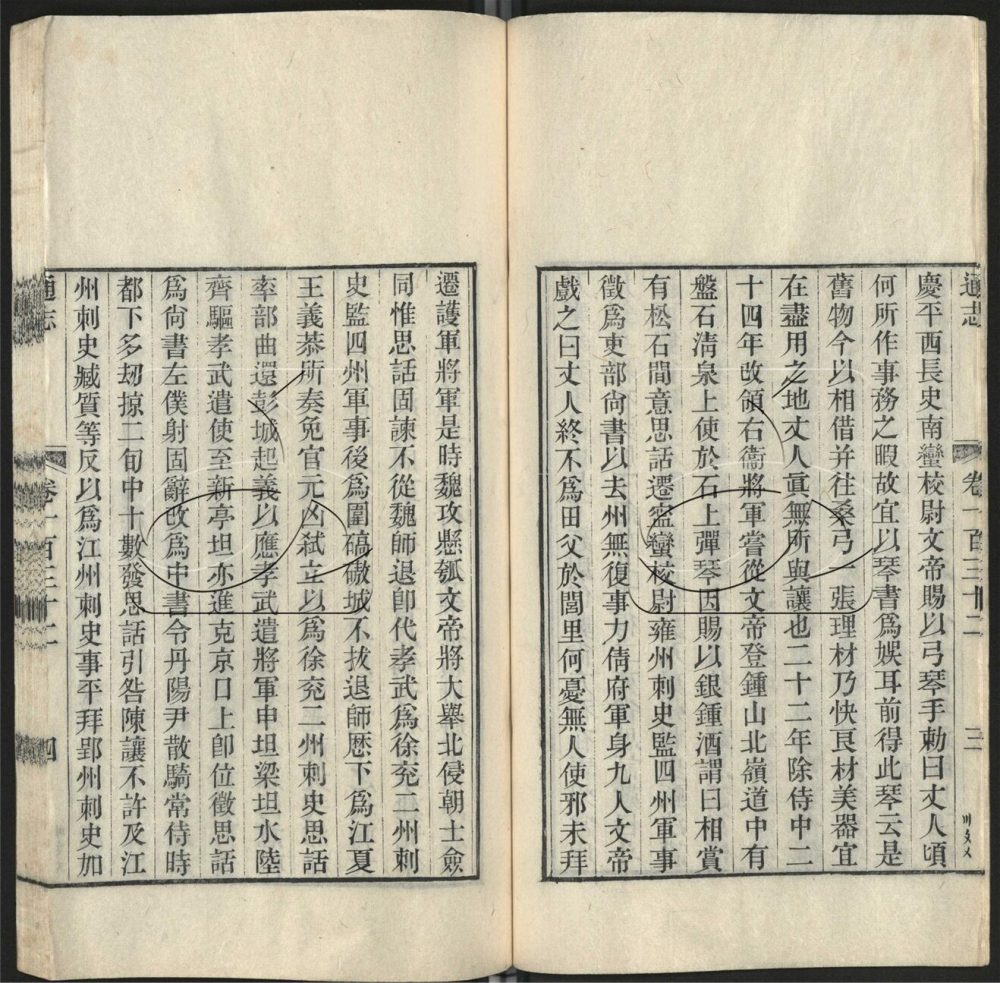 通志
卷一百三十二
三
慶平西長史南蠻校尉文帝賜以弓琴手勅曰丈人頃
何所作事務之暇故宜以琴書爲娛耳前得此琴云是
舊物今以相借并往桑弓一張理材乃快良材美器宜
在盡用之地丈人眞無所與讓也二十二年除侍中二
十四年改領右衞將軍嘗從文帝登鍾山北嶺道中有
盤石清泉上使於石上彈琴因賜以銀鍾酒謂曰相賞
有松石間意思話遷寧蠻校尉雍州刺史監四州軍事
徵爲吏部尙書以去州無復事力倩府軍身九人文帝
戲之曰丈人終不爲田父於閭里何憂無人使邪未拜
遷護軍將軍是時魏攻懸瓠文帝將大舉北侵朝士僉
同惟思話固諫不從魏師退卽代孝武爲徐兖二州刺
史監四州軍事後爲圍碻磝城不拔退師歷下爲江夏
王義恭所奏免官元凶弑立以爲徐兖二州刺史思話
率部曲還彭城起義以應孝武遣將軍申坦梁坦水陸
齊驅孝武遣使至新亭坦亦進克京口上卽位徵思話
爲尙書左僕射固辭改爲中書令丹陽尹散騎常侍時
都下多刼掠二旬中十數發思話引咎陳讓不許及江
州刺史臧質等反以爲江州刺史事平拜郢州刺史加
通志
卷一百三十二
四